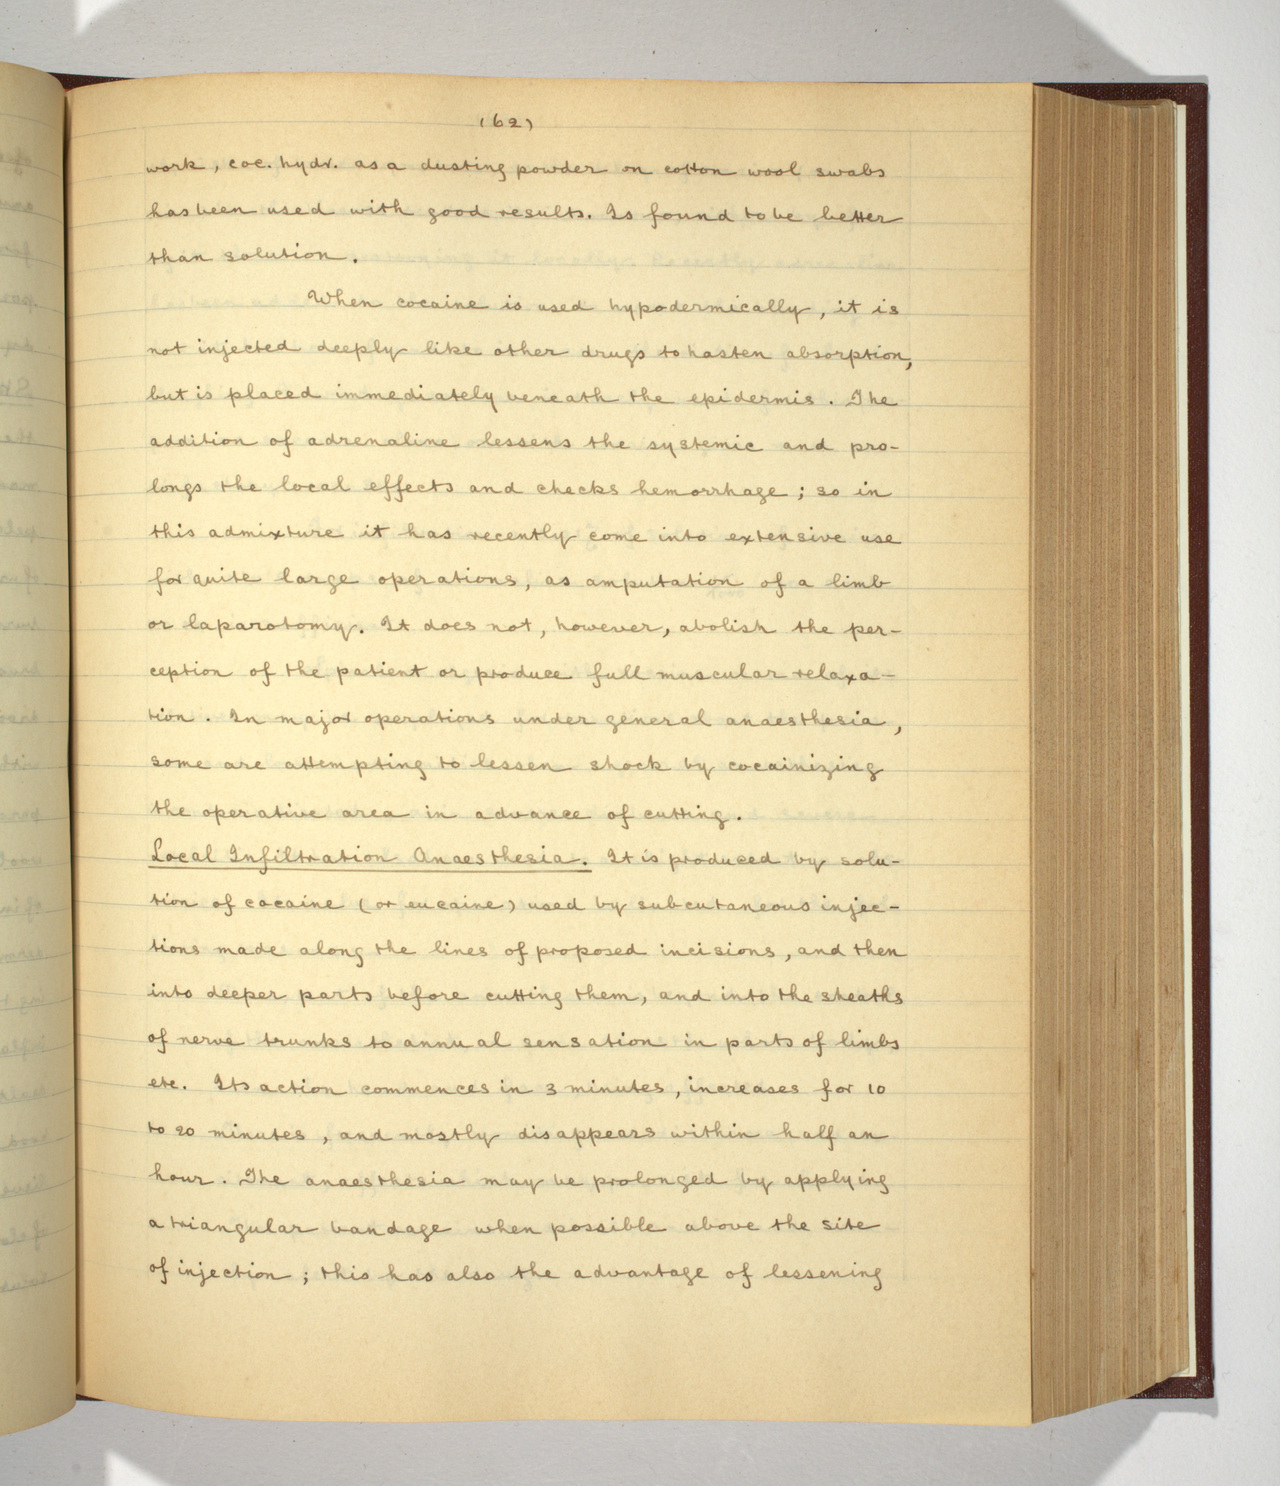 (62)
work, coc. hydr. as a dusting powder on cotton wool swabs
has been used with good results. Is found to be better
than solution.
When cocaine is used hypodermically, it is
not injected deeply like other drugs to hasten absorption,
but is placed immediately beneath the epidermis. The
addition of adrenaline lessens the systemic and pro-
longs the local effects and checks hemorrhage; so in
this admixture it has recently come into extensive use
for quite large operations, as amputation of a limb
or laparotomy. It does not, however, abolish the per-
ception of the patient or produce full muscular relaxa-
tion. In major operations under general anaesthesia,
some are attempting to lessen shock by cocainizing
the operative area in advance of cutting.
Local Infiltration Anaesthesia. It is produced by solu-
tion of cocaine (or eucaine) used by subcutaneous injec-
tions made along the lines of proposed incisions, and then
into deeper parts before cutting them, and into the sheaths
of nerve trunks to annual sensation in parts of limbs
etc. Its action commences in 3 minutes, increases for 10
to 20 minutes, and mostly disappears within half an
hour. The anaesthesia may be prolonged by applying
a triangular bandage when possible above the site
of injection; this has also the advantage of lessening